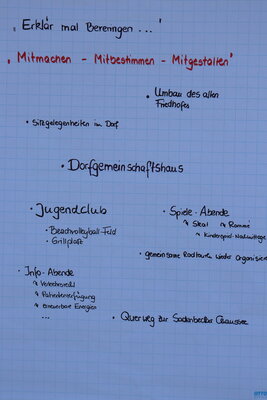 „Erklär mal Berenngen ..."
„Mitmachen - Mitbestimmen - Mitgestalten"
• Umbau des alten
Friedhofes
• Sitzgelegenheiten im Dorf
• Dorfgemeinschaftshaus
• Jugendclub
• Beachvolleyball-Feld
• Grillplatz
• Spiele-Abende
↳ Skat ↳ Rommé
↳ Kinderspiel-Nachmittage
• gemeinsame Radtouren wieder organisieren
• Info-Abende
↳ Patientenverfügung
↳ erneuerbare Energien
...
• Querweg zur Chaussee